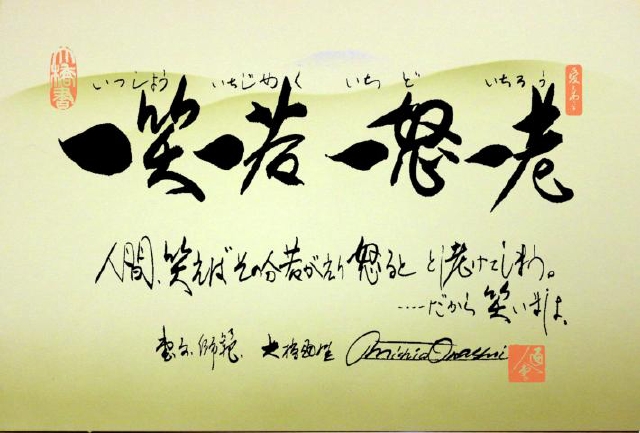 いっしょう いちじゃく いちど いちろう
一笑一若一怒一老
人間、笑えばその分若がえり怒ると とし老けてしまう。
……だから笑いましょ。
師範 大橋